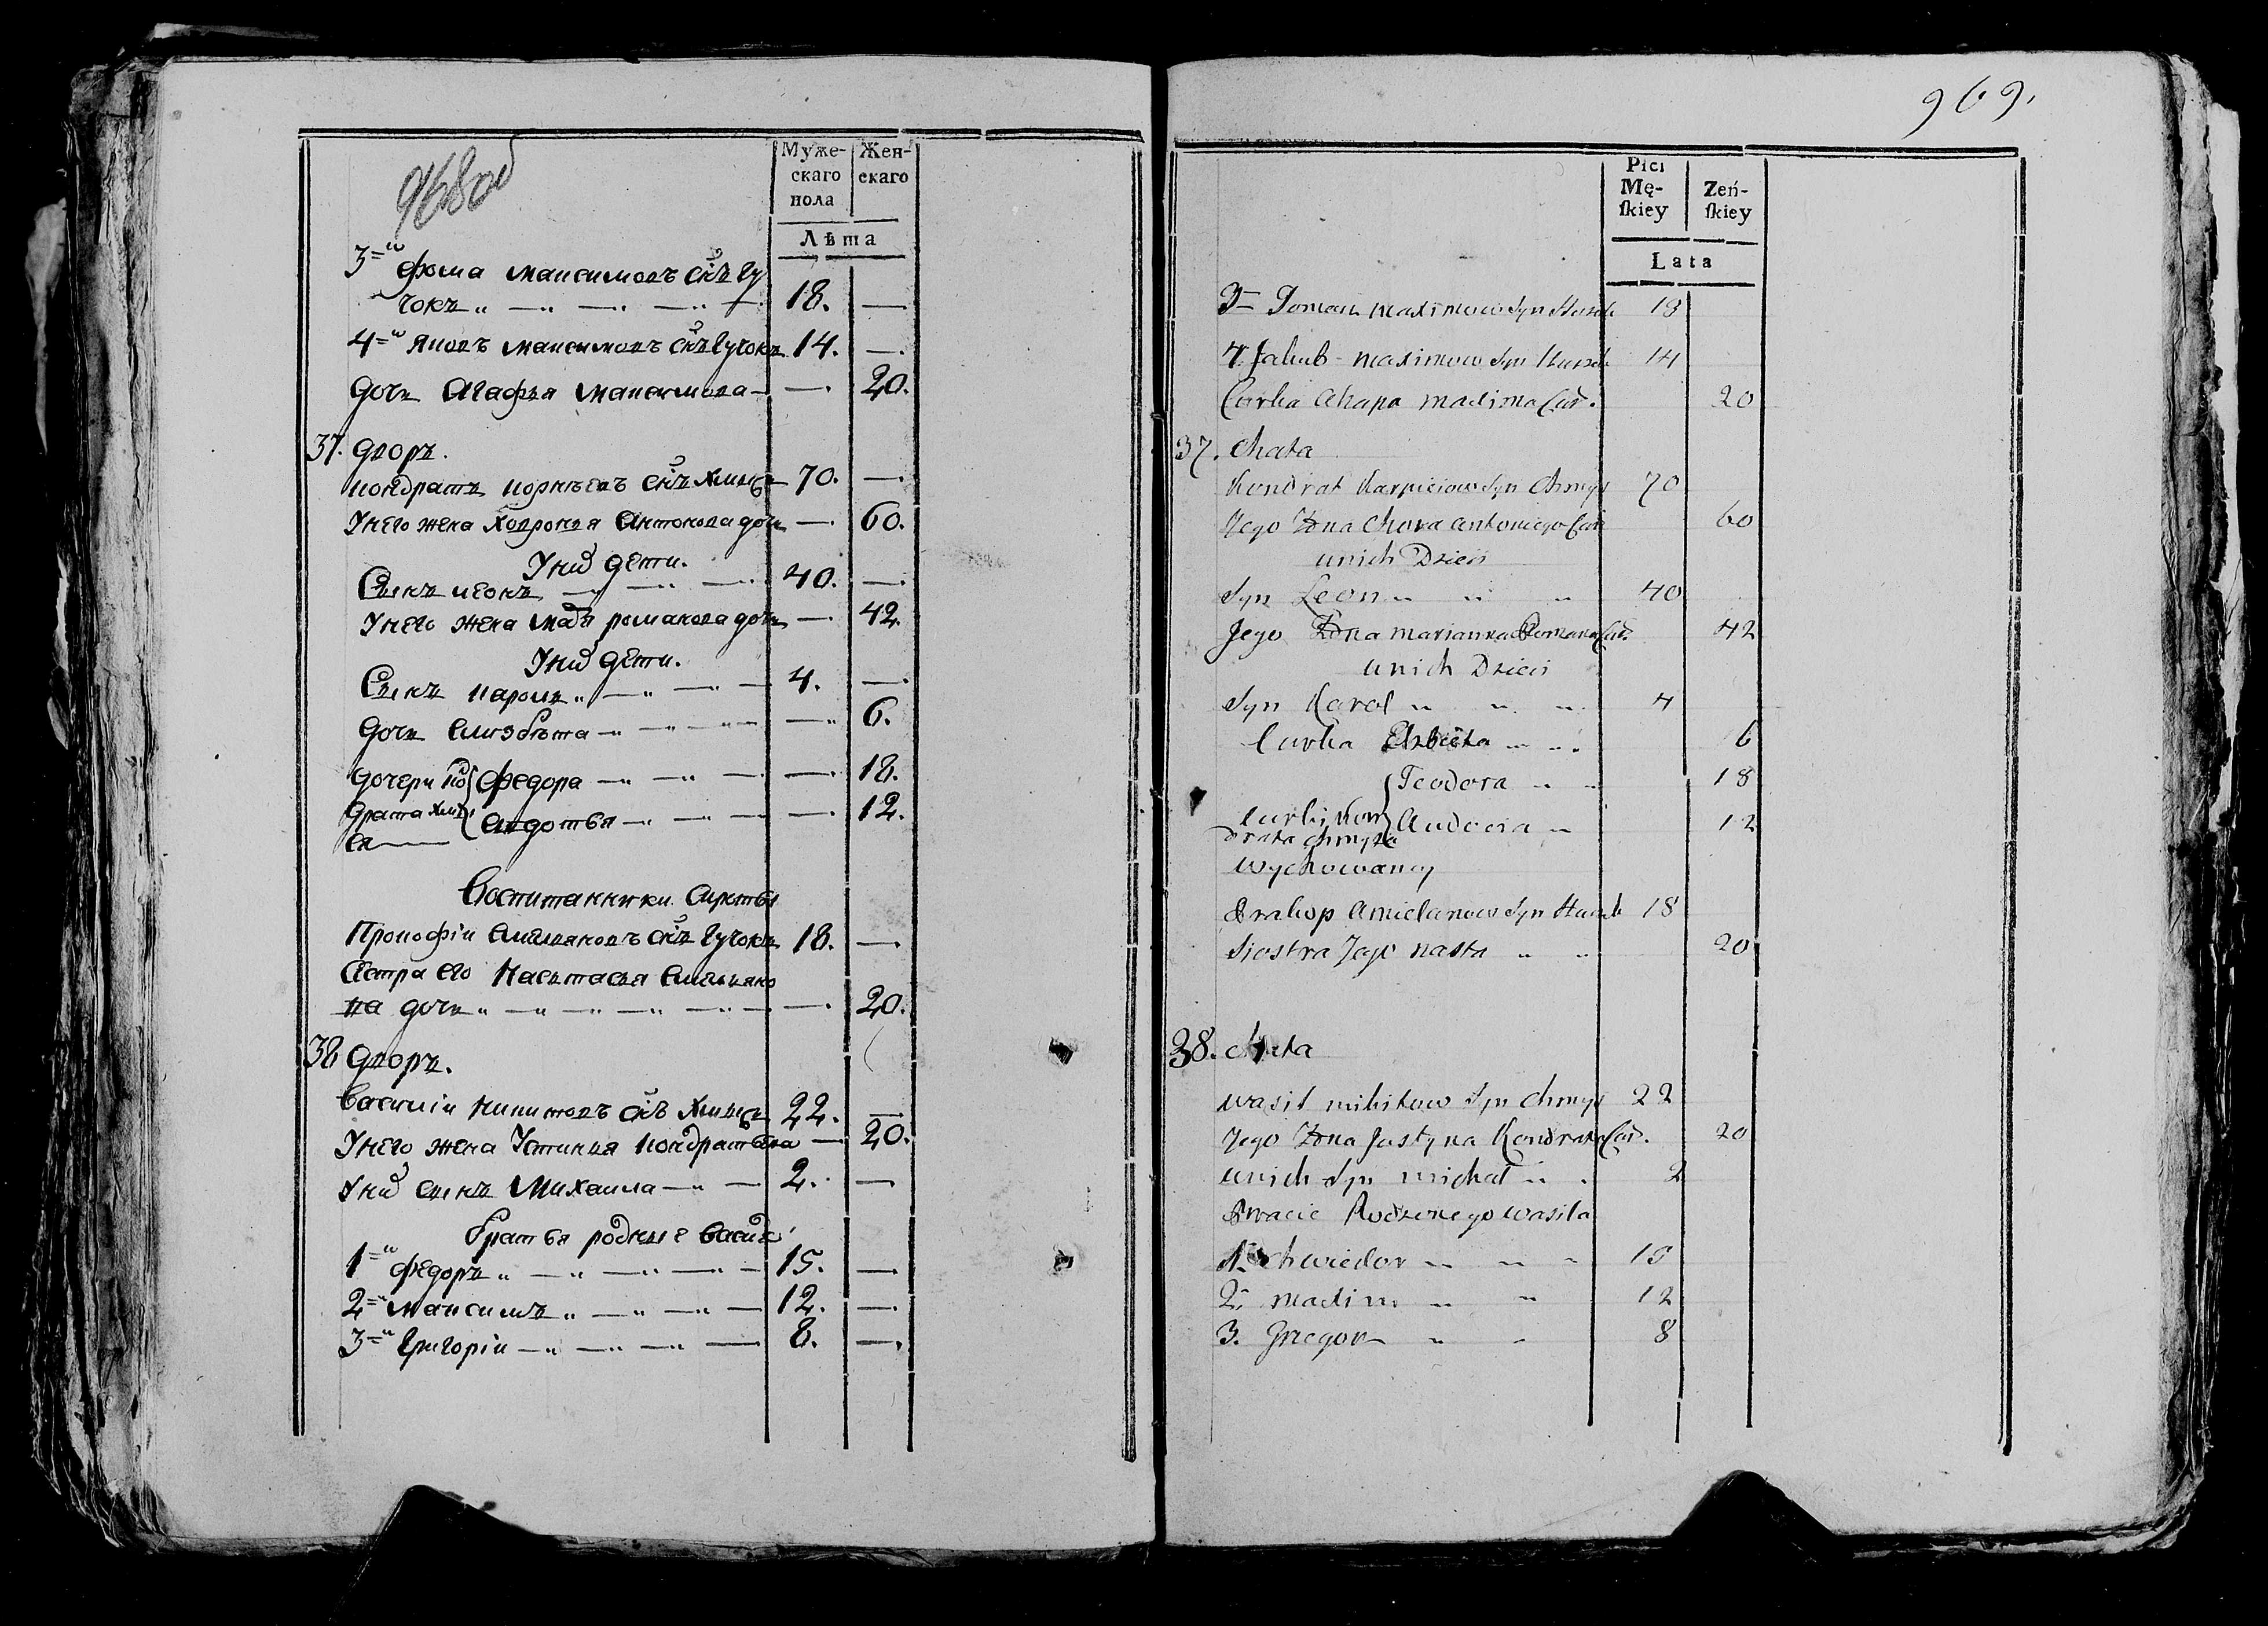 968об
Муже-
скаго
пола
Жен-
скаго
Лѣта
3=й Фома Максимовъ снъ Гу
чокъ 18. —
4=й Яковъ Максимовъ снъ Гучокъ 14. —
дочь Агафья Максимова — 20.
37. дворъ.
Кондратъ Корнѣевъ снъ Хмызъ 70. —
Унего жена Ховронья Антонова дочь — 60.
Уних дети.
Сынъ Леонъ 40. —
Унего жена Маря романова дочь — 42.
Уних дети.
Сынъ Кароль 4. —
дочь Елизбѣта — 6.
дочери Кон Федора — 18.
драта Авдотья — 12.
Воспитанники сироты
Прокофіи Емельяновъ снъ Гучокъ 18. —
Сестра его Настасья Емельяно
ва дочь — 20.
38 дворъ.
Василіи Никитовъ снъ Хмызъ 22. —
Унего жена Устинья Кондратьева — 20.
Уних сынъ Михаила 2. —
братья родные
1=й Федоръ 15. —
2=й Максимъ 12. —
3=й Григоріи 8. —
969.
Płci
Mę-
skiey
Zeń-
skiey
Lata
3= Toman Maximow Syn Huczok 18
4. Jakub Maximow Syn Huczok 14
Curka Ahapa Maxima Cur. 20
37. Chata
Kondrat Karpieiow Syn Chmyz 70
Jego Zona Chowra Antoniego Cur 60
unich Dzieci
Syn Leon 40
Jego Zona Marianna Romana Cur. 42
unich Dzieci
Syn Karol 4
Curka Elzbieta 6
Teodora 18
Curki Kon Audocia 12
drata Chmyza
Wychowancy
Prakop Amielanow Syn Huczok 18
Siostra Jego Nasta 20
38. Chata
Wasil Mikitow Syn Chmyz 22
Jego Zona Justyna Kondrata Cur. 20
unich Syn Michał 2
Bracie Rodzonego Wasila
1. Chwiedor 15
2. Maxim 12
3. Gregor 8